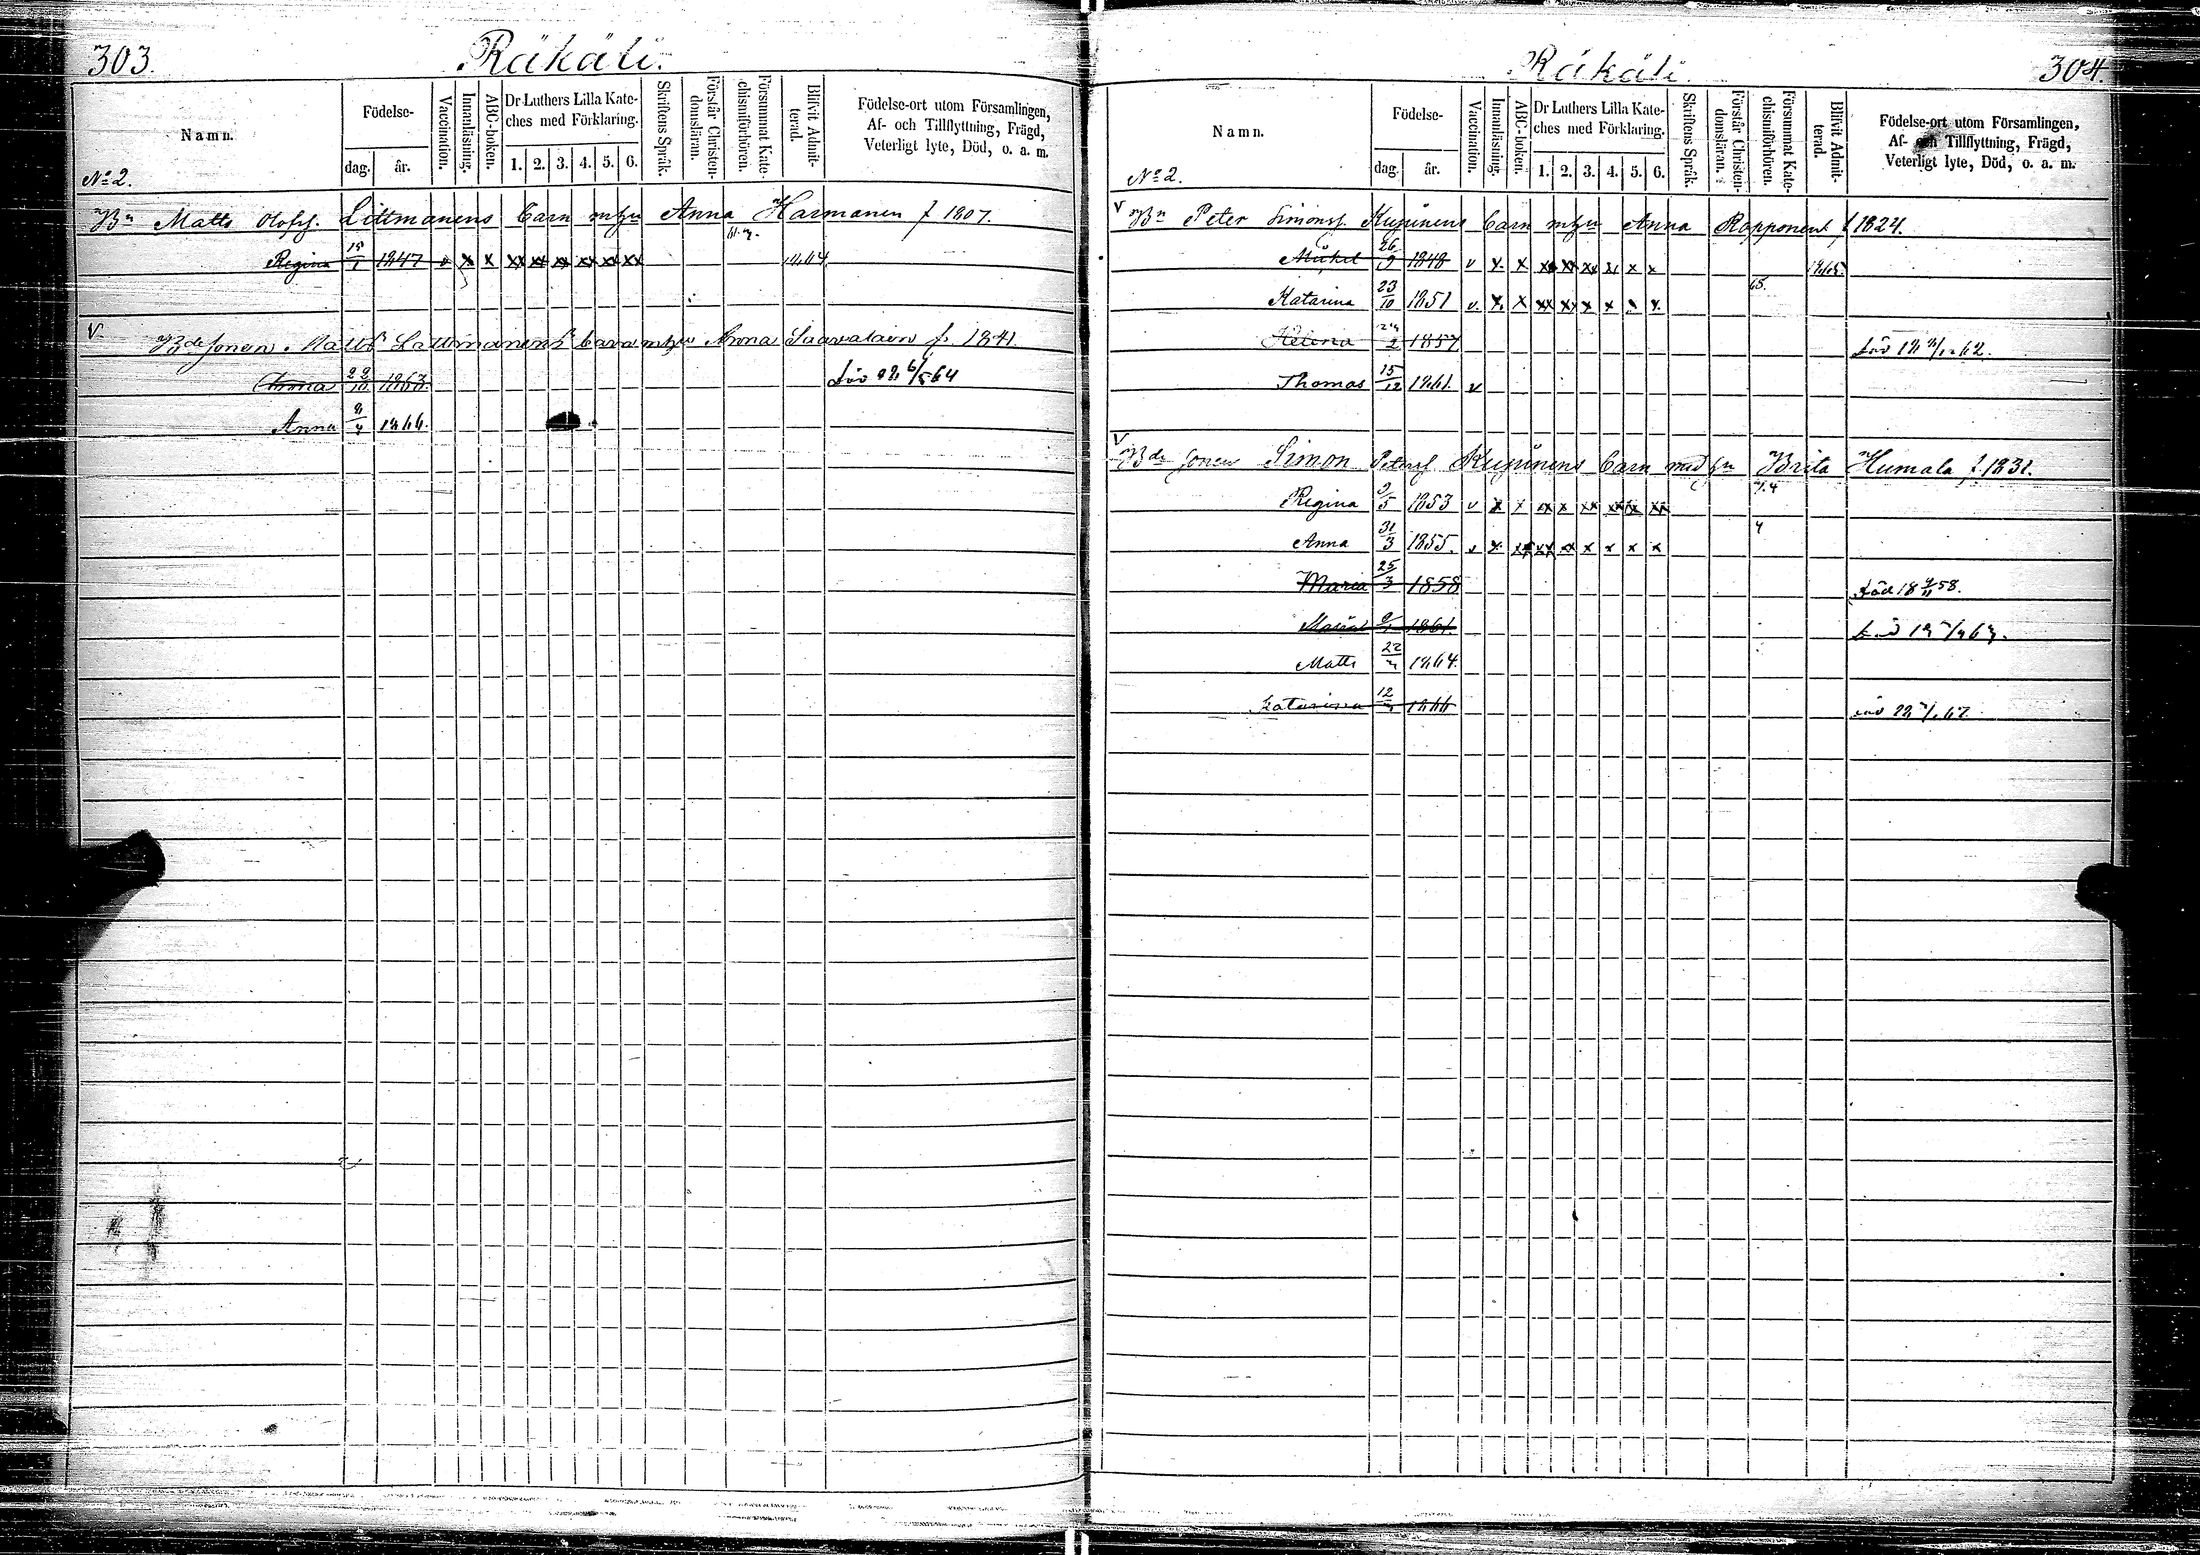 303.
Räkäli.
Namn.
Födelse-
dag.
år.
Vaccination.
Innanläsning.
ABC-boken.
Dr Luthers Lilla Kate-
ches med Förklaring.
1. 2. 3. 4. 5. 6.
Skriftens Språk.
Förstår Christen-
domsläran.
Försummat Kate-
chismiförhören.
Blifvit Admit-
terad.
Födelse-ort utom Församlingen,
Af- och Tillflyttning, Frägd,
Veterligt lyte, Död, o. a. m.
No 2.
Bn Matts Olofss. Littmanens barn m hu Anna Harmanen f 1807.
Regina 1847 v x x xx xx xx xx xx xx 1864
v
Bde sonen Matts Lattmanens barn m hu Anna Saavalain f. 1841.
Anna 22/10 1863 död 18 6/5 64
Anna 1866.
304.
Räkäli.
Namn.
Födelse-
dag.
år.
Vaccination.
Innanläsning.
ABC-boken.
Dr Luthers Lilla Kate-
ches med Förklaring.
1. 2. 3. 4. 5. 6.
Skriftens Språk.
Förstår Christen-
domsläran.
Försummat Kate-
chismiförhören.
Blifvit Admit-
terad.
Födelse-ort utom Församlingen,
Af- och Tillflyttning, Frägd,
Veterligt lyte, Död, o. a. m.
No 2.
v Bn Peter Simonss. Kupinens barn m hu Anna Rapponen f 1824.
Mickel 26/9 1848 v x x xx xx xx x x x 1865.
65.
Katarina 23/10 1851 v. x x xx xx x x x x
Helena 1857 död
Thomas 15/12 1861. v
v
Bde sonen Simon Peterss. Kupinens barn med hu Brita Humala f 1831.
Regina 9/5 1853 v x x xx x xx xx xx xx
Anna 31/3 1855. v x xx xx x x x x x
Maria 25/3 1858 död 18 58.
Maria 1861.
Matts 1864.
Katarina 1866